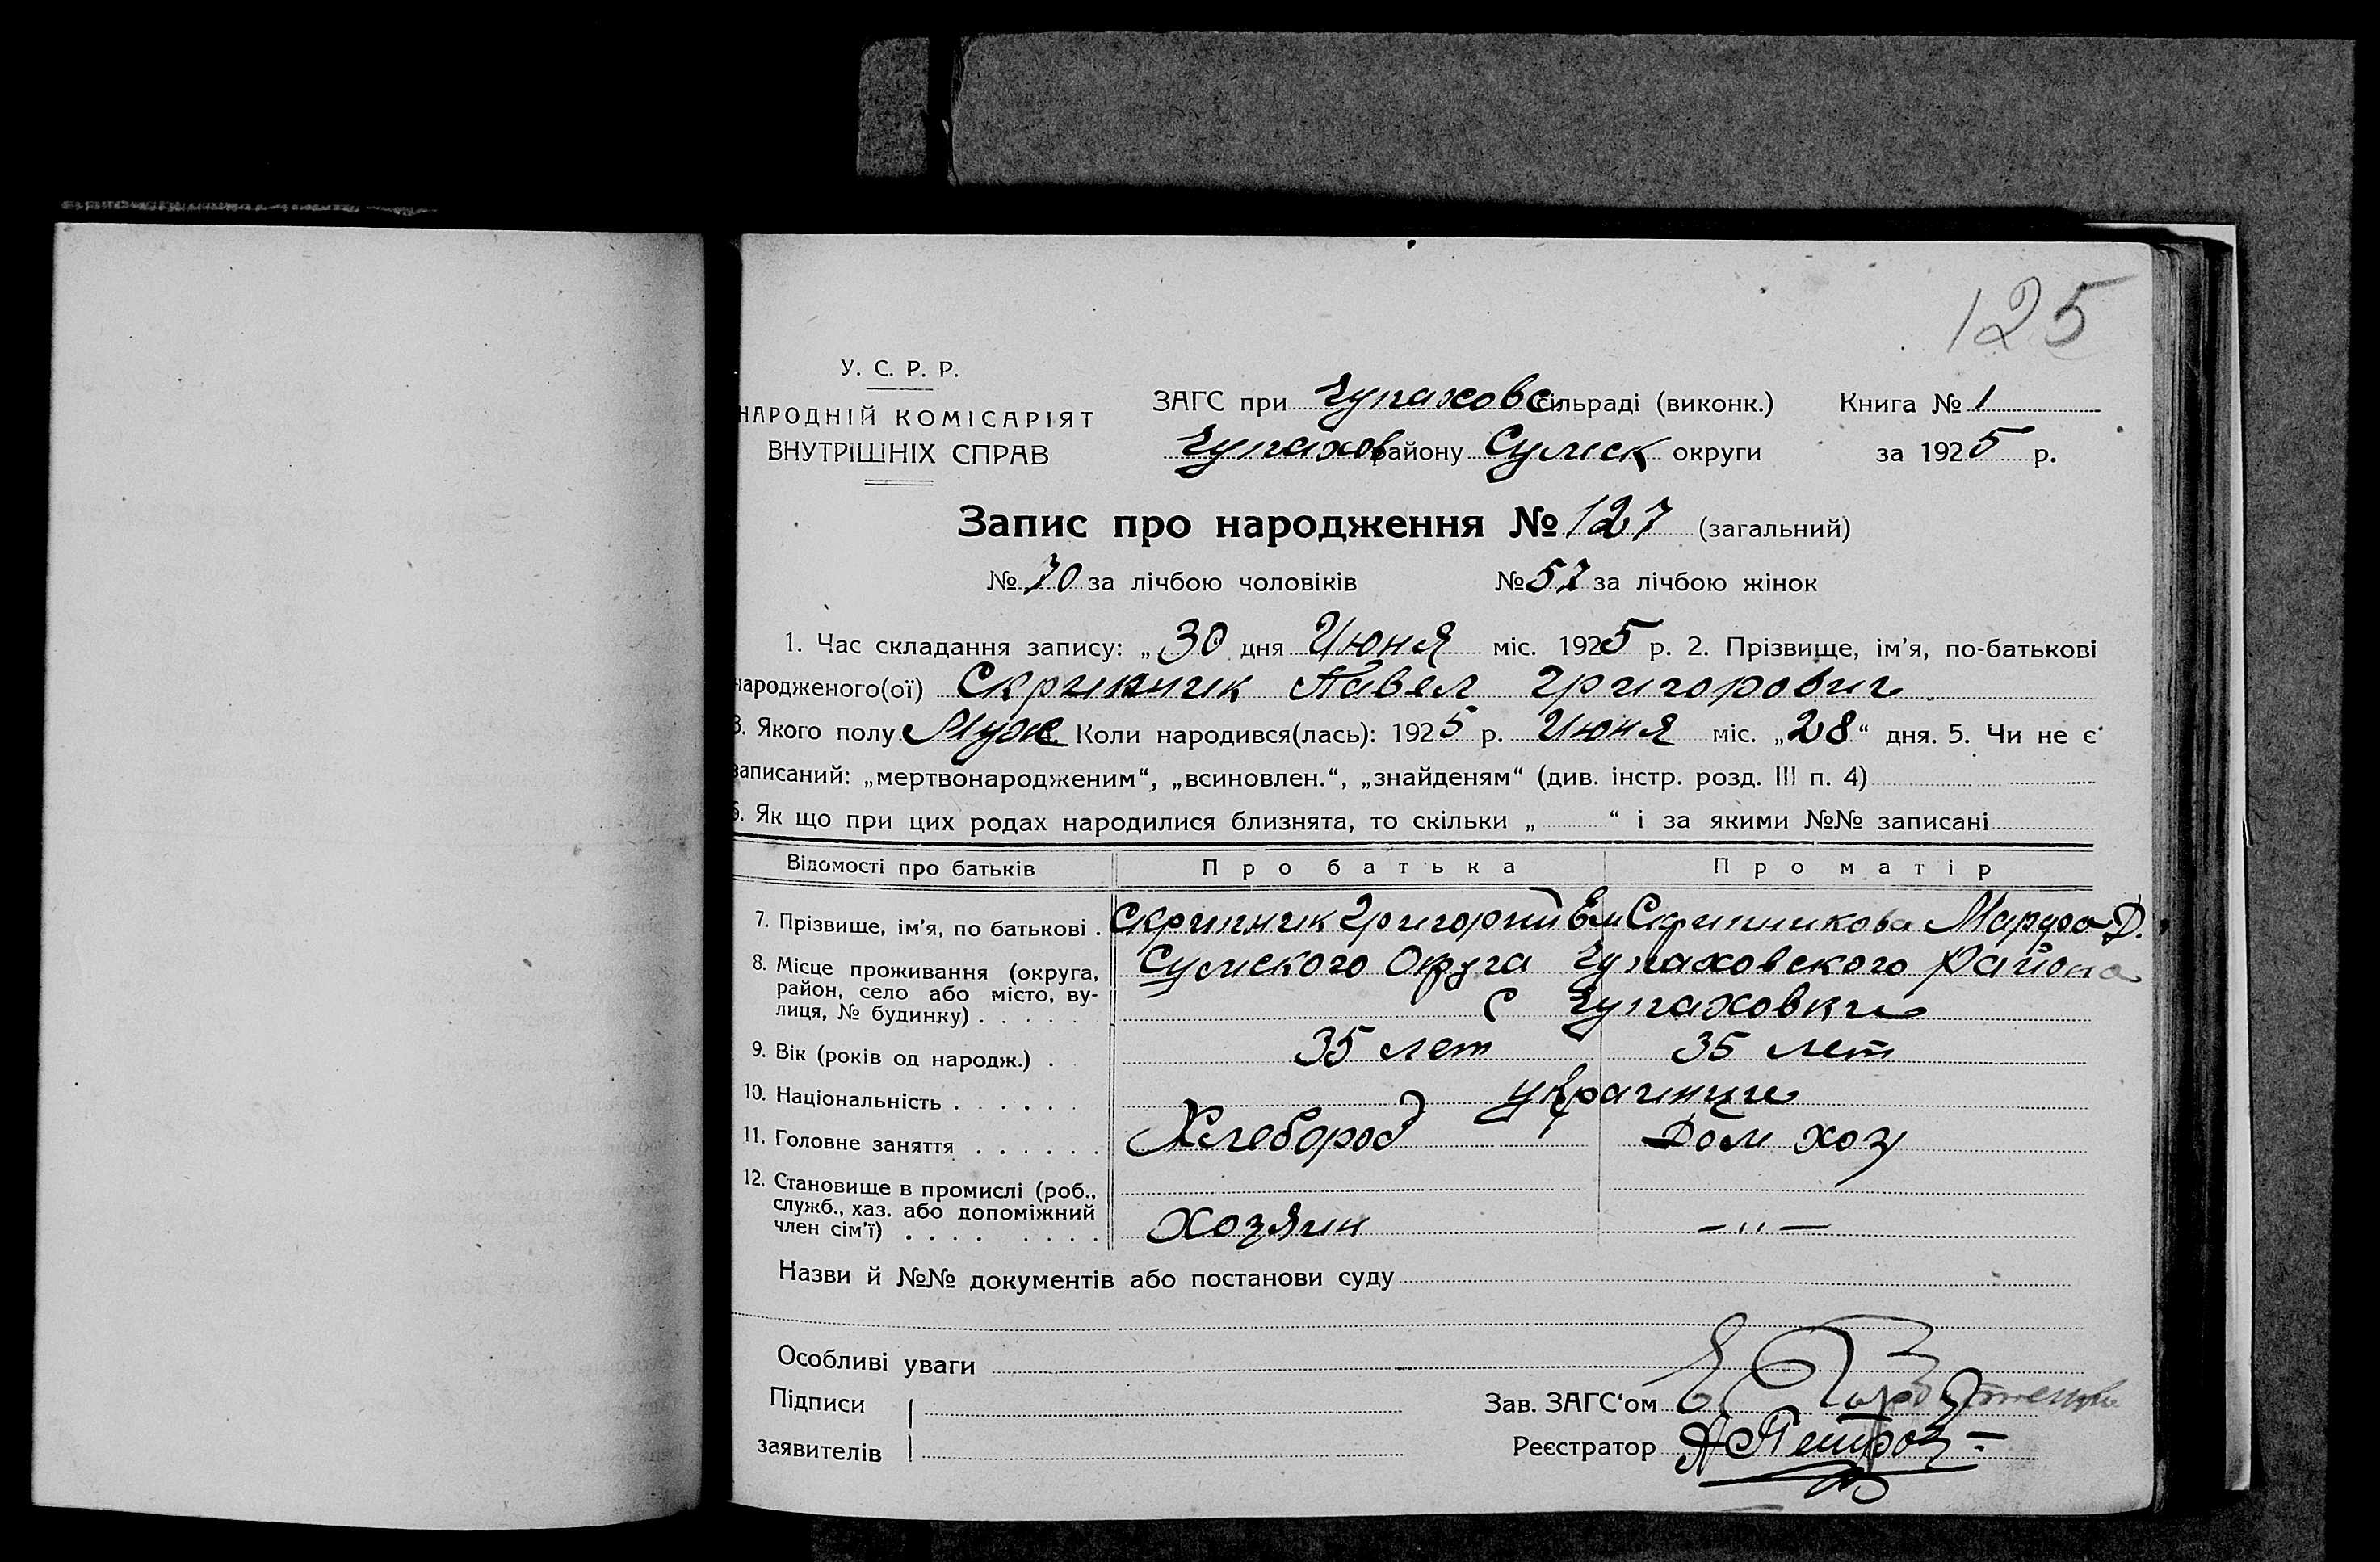 125
У. С. Р. Р.
НАРОДНІЙ КОМІСАРІЯТ
ВНУТРІШНІХ СПРАВ
ЗАГС при Чупаховс. сільраді (виконк.) Книга № 1
Чупахов району Сумск округи за 1925 р.
Запис про народження № 127 (загальний)
№ 70 за лічбою чоловіків № 57 за лічбою жінок
1. Час складання запису: „30 дня Июня міс. 1925 р. 2. Прізвище, ім'я, по-батькові
народженого(ої) Скрипник Павел Григорович
3. Якого полу Муж 4. Коли народився(лась): 1925 р. Июня міс. „28“ дня. 5. Чи не є
записаний: „мертвонародженим“, „всиновлен.“, „знайденям“ (див. інстр. розд. III п. 4)
6. Як що при цих родах народилися близнята, то скільки „ “ і за якими №№ записані
Відомості про батьків Про батька Про матір
7. Прізвище, ім'я, по батькові . Скрипник Григорий Ем Скрипникова Марфа Д.
8. Місце проживання (округа, Сумского Округа Чупаховского Района
район, село або місто, ву-
лиця, № будинку) . . . . . . С Чупаховки
9. Вік (років од народж.) . 35 лет 35 лет
10. Національність . . . . . . украинцы
11. Головне заняття . . . . . . Хлебород Дом хоз
12. Становище в промислі (роб.,
служб., хаз. або допоміжний
член сім'ї) . . . . . . . . Хозяин — „ —
Назви й №№ документів або постанови суду
Особливі уваги
Підписи
Зав. ЗАГС‘ом
заявителів
Реєстратор А Петров